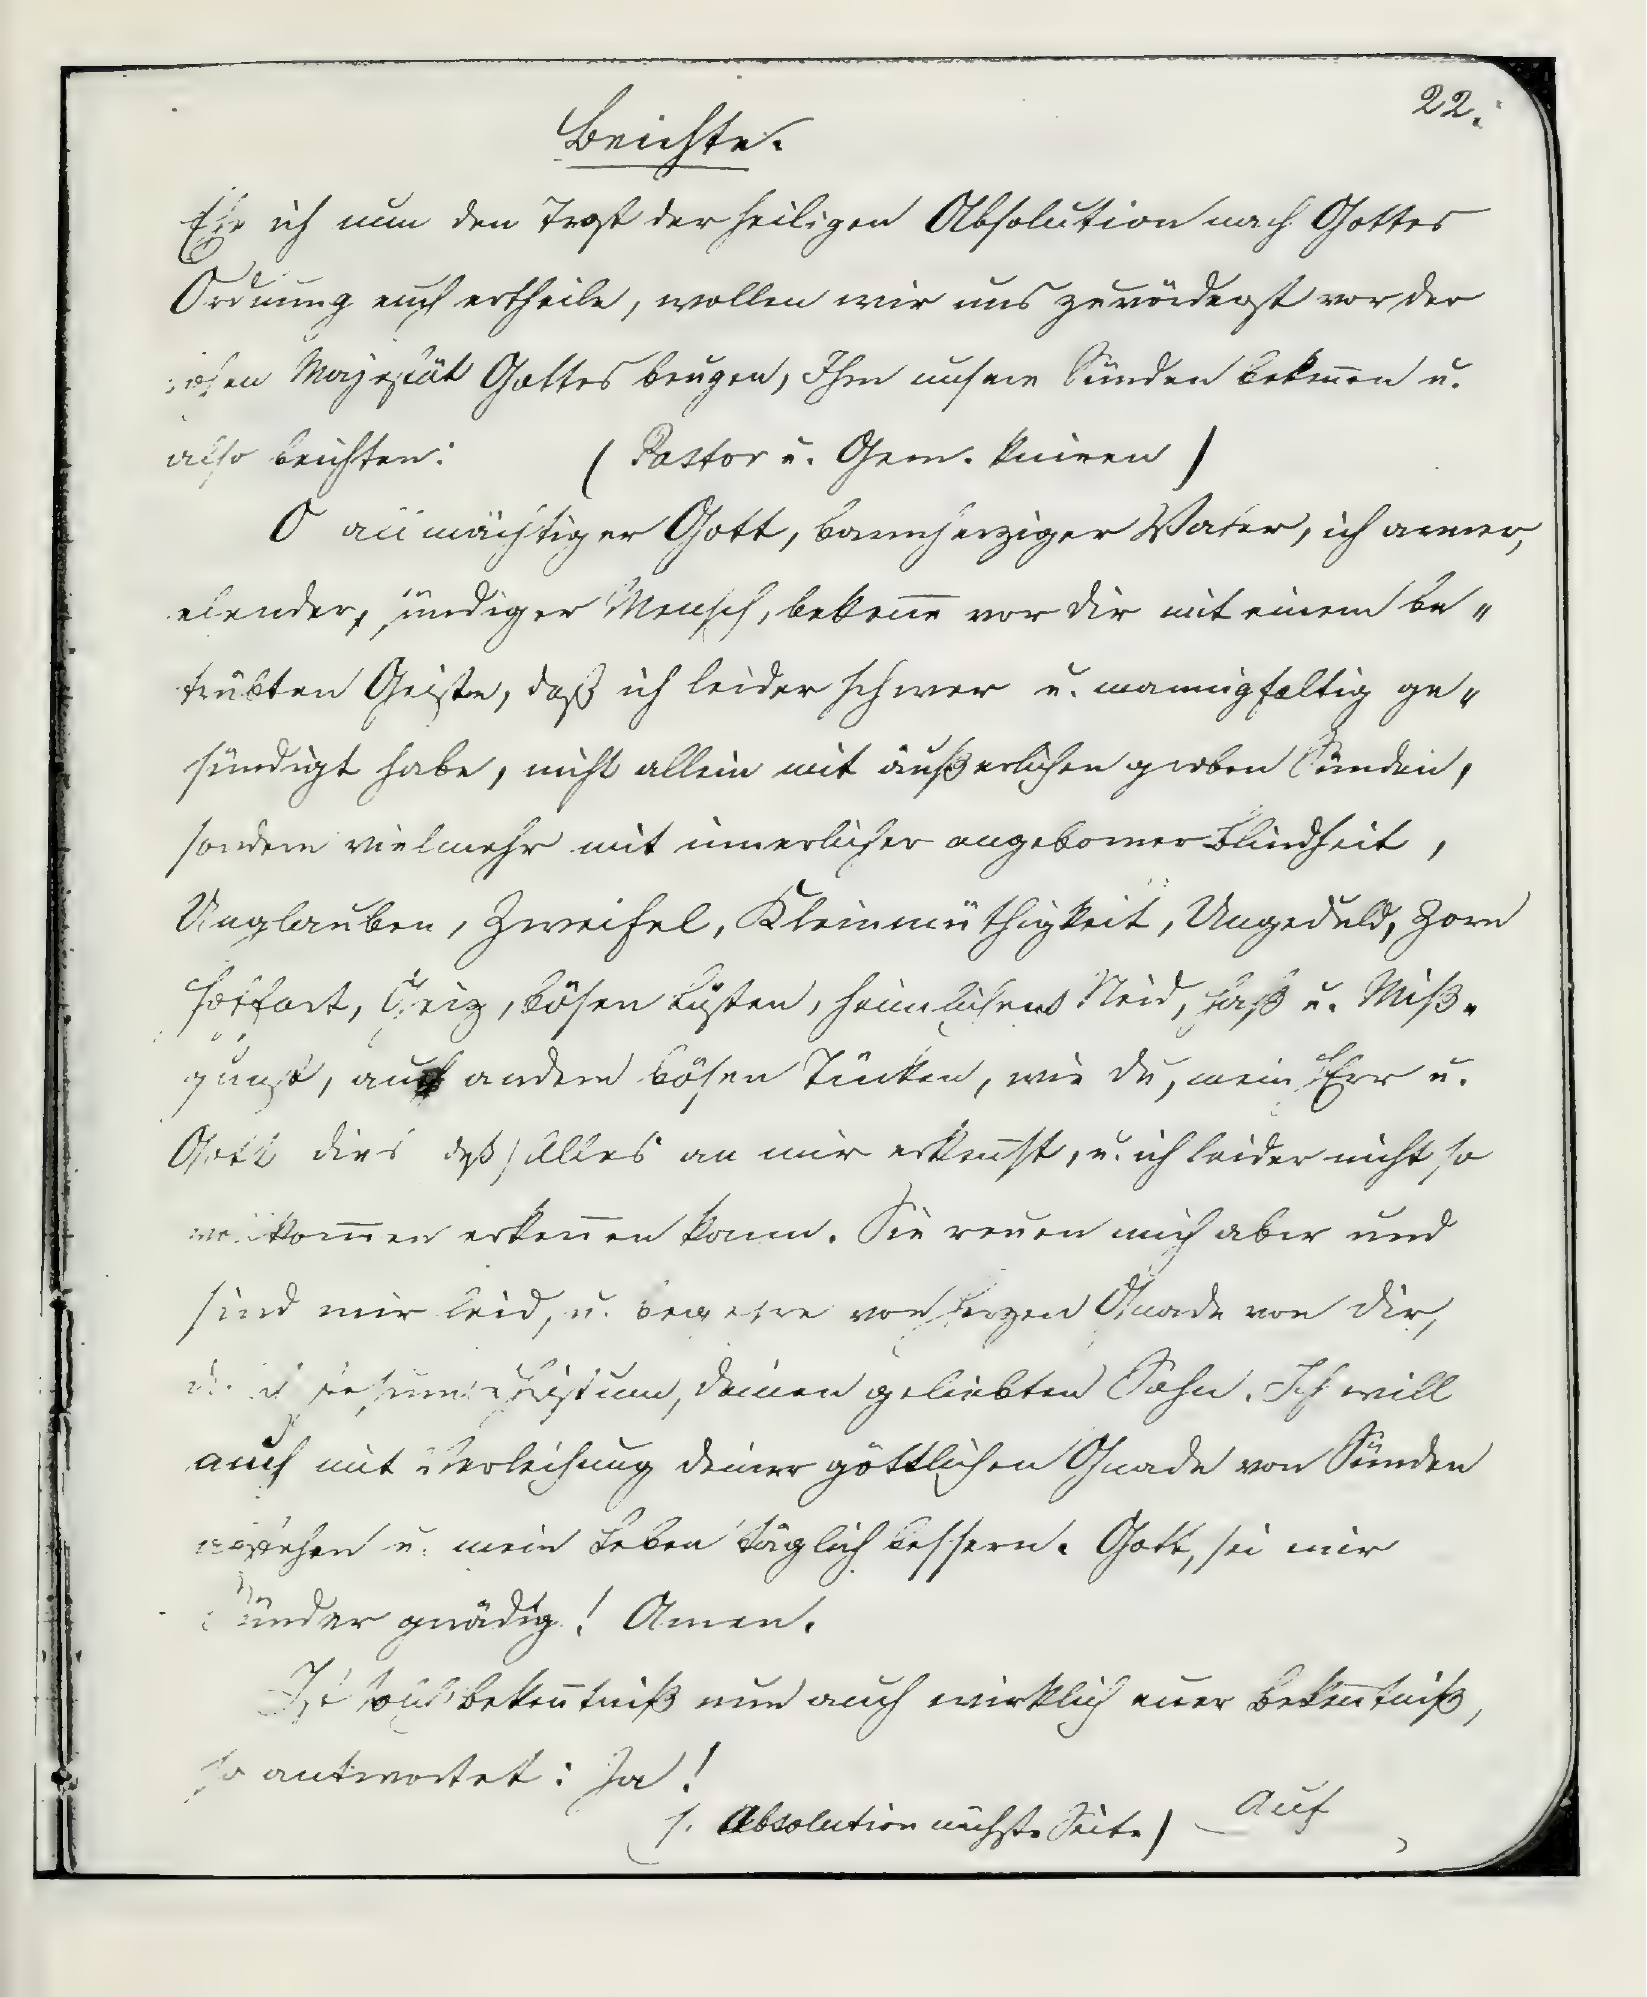 22.
Beichte.
Ehe ich nun den Trost der heiligen Absolution nach Gottes
Ordnung euch ertheile, wollen wir uns zuvörderst vor der
hohen Majestät Gottes beugen, Ihm unsere Sünden bekennen u.
also beichten: (Pastor u. Gem. knieen)
O allmächtiger Gott, barmherziger Vater, ich armer,
elender, sündiger Mensch, bekenne vor dir mit einem be„
trübten Geiste, daß ich leider schwer u. mannigfaltig ge„
sündigt habe, nicht allein mit äußerlichen groben Sünden,
sondern vielmehr mit innerlicher angeborner Blindheit,
Unglauben, Zweifel, Kleinmüthigkeit, Ungeduld, Zorn
Hoffart, Geiz, bösen Lüsten, heimlichem Neid, Haß u. Miß„
gunst, auch andern bösen Tücken, wie du, mein HErr u.
Gott dies Alles an mir erkennst, u. ich leider nicht so
vollkommen erkennen kann. Sie reuen mich aber und
sind mir leid, u. begehre von Herzen Gnade von dir,
durch Jesum Christum, deinen geliebten Sohn. Ich will
auch mit Verleihung deiner göttlichen Gnade von Sünden
abstehen u. mein Leben täglich bessern. Gott, sei mir
Sünder gnädig! Amen.
Ist bekenntniß nun auch wirklich euer Bekenntniß,
so antwortet: Ja!
(s. Absolution nächste Seite) Auf